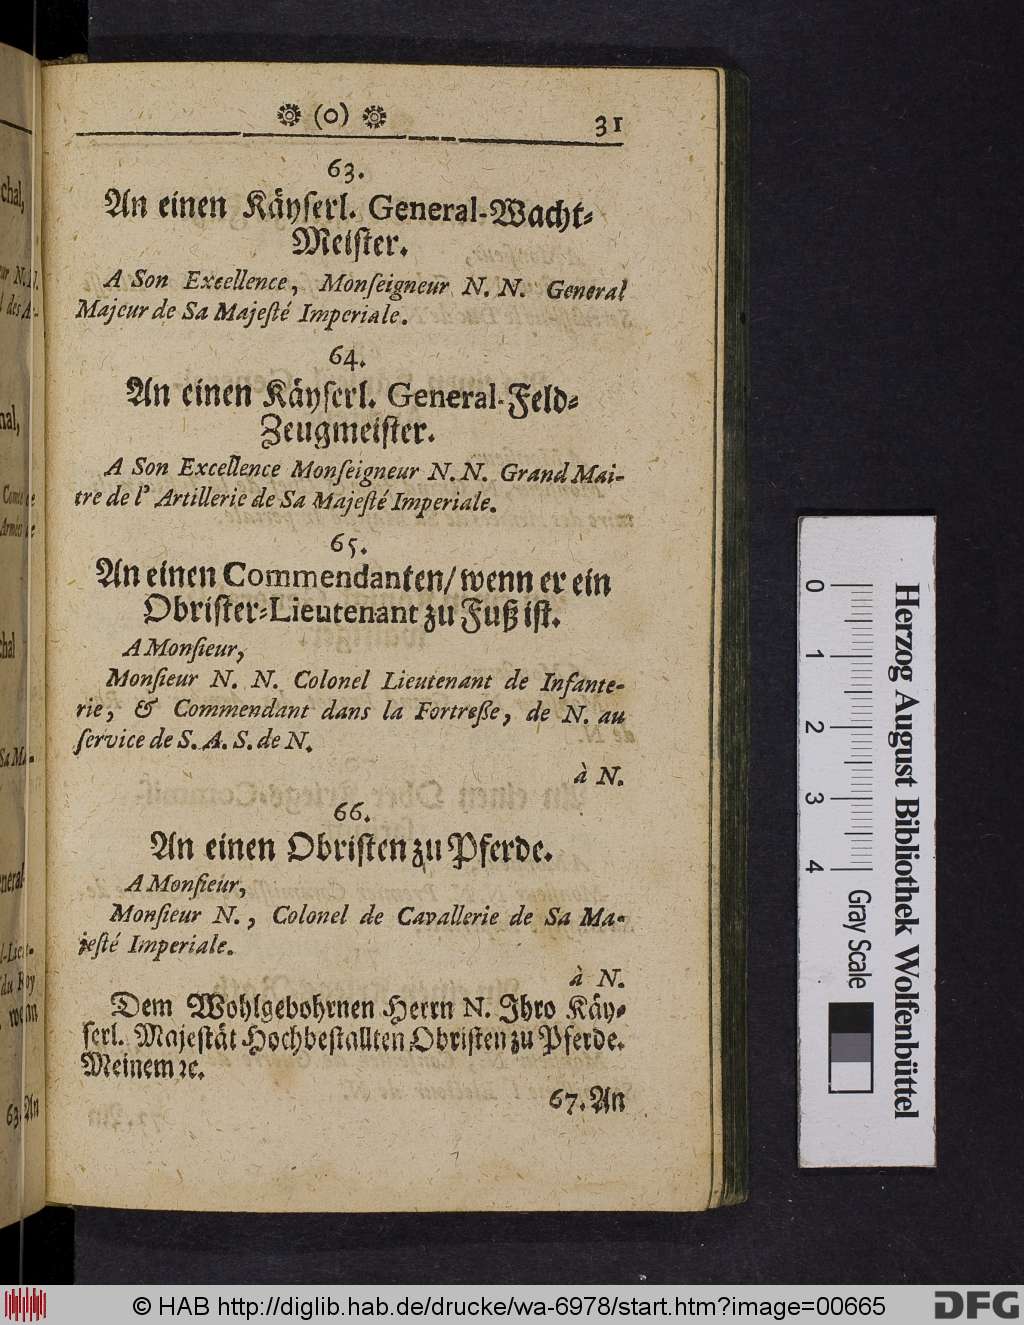 ❁ (o) ❁ 31
63.
An einen Käyserl. General-Wacht-
Meister.
A Son Excellence, Monſeigneur N. N. General
Majeur de Sa Majeſté Imperiale.
64.
An einen Käyserl. General-Feld-
Zeugmeister.
A Son Excellence Monſeigneur N. N. Grand Mai-
tre de l' Artillerie de Sa Majeſté Imperiale.
65.
An einen Commendanten/ wenn er ein
Obriſter-Lieutenant zu Fuß iſt.
A Monſieur,
Monſieur N. N. Colonel Lieutenant de Infante-
rie, & Commendant dans la Fortreße, de N. au
ſervice de S. A. S. de N.
à N.
66.
An einen Obriſten zu Pferde.
A Monſieur,
Monſieur N., Colonel de Cavallerie de Sa Ma-
jeſté Imperiale.
à N.
Dem Wohlgebohrnen Herrn N. Ihro Käy-
ſerl. Majeſtät Hochbeſtallten Obriſten zu Pferde.
Meinem ꝛc.
67. An
chal,
nal,
63. An
Herzog August Bibliothek Wolfenbüttel
0 1 2 3 4 Gray Scale
© HAB http://diglib.hab.de/drucke/wa-6978/start.htm?image=00665
DFG